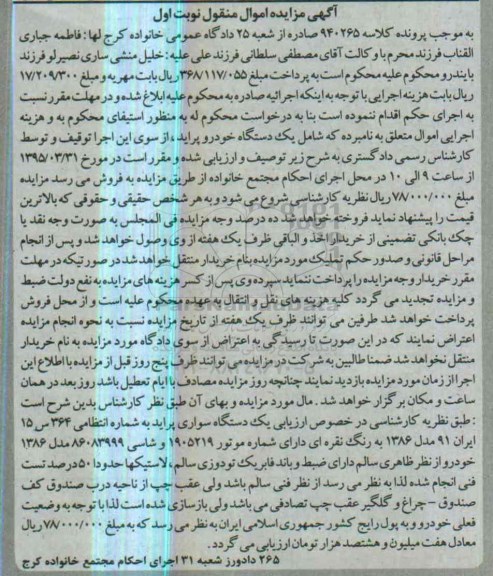 آگهی مزایده اموال منقول نوبت اول
به موجب پرونده کلاسه ۹۴۰۲۶۵ صادره از شعبه ۲۵ دادگاه عمومی خانواده کرج لها: فاطمه جباری
القناب فرزند محرم با وکالت آقای مصطفی سلطانی فرزند علی علیه: خلیل منشی ساری نصیرلو فرزند
بایندرو محکوم علیه محکوم است به پرداخت مبلغ ۳۶۸/۱۱۷/۰۵۵ ریال بابت مهریه و مبلغ ۱۷/۲۰۹/۳۰۰
ریال بابت هزینه اجرایی با توجه به اینکه اجرائیه صادره به محکوم علیه ابلاغ شده و در مهلت مقرر نسبت
به اجرای حکم اقدام ننموده است بنا به درخواست محکوم له به منظور استیفای محکوم به و هزینه
اجرایی اموال متعلق به نامبرده که شامل یک دستگاه خودرو پراید، از سوی این اجرا توقیف و توسط
کارشناس رسمی دادگستری به شرح زیر توصیف و ارزیابی شده و مقرر است در مورخ ۱۳۹۵/۰۳/۳۱
از ساعت ۹ الی ۱۰ در محل اجرای احکام مجتمع خانواده از طریق مزایده به فروش می رسد مزایده
مبلغ ۷۸/۰۰۰/۰۰۰ ریال نظریه کارشناسی شروع می شود و به هر شخص حقیقی و حقوقی که بالاترین
قیمت را پیشنهاد نماید فروخته خواهد شد ده درصد وجه مزایده فی المجلس به صورت وجه نقد یا
چک بانکی تضمینی از خریدار اخذ و الباقی ظرف یک هفته از وی وصول خواهد شد و پس از انجام
مراحل قانونی و صدور حکم تملیک مورد مزایده بنام خریدار منتقل خواهد شد در صورتیکه در مهلت
مقرر خریدار وجه مزایده را پرداخت ننماید سپرده وی پس از کسر هزینه های مزایده به نفع دولت ضبط
و مزایده تجدید می گردد کلیه هزینه های نقل و انتقال به عهده محکوم علیه است و از محل فروش
پرداخت خواهد شد طرفین می توانند ظرف یک هفته از تاریخ مزایده نسبت به نحوه انجام مزایده
اعتراض نمایند که در این صورت تا رسیدگی به اعتراض از سوی دادگاه مورد مزایده به نام خریدار
منتقل نخواهد شد ضمنا طالبین به شرکت در مزایده می توانند ظرف پنج روز قبل از مزایده با اطلاع این
اجرا از زمان مورد مزایده بازدید نمایند چنانچه روز مزایده مصادف با ایام تعطیل باشد روز بعد در همان
ساعت و مکان برگزار خواهد شد . مال مورد مزایده و بهای آن طبق نظر کارشناس بدین شرح است
: طبق نظریه کارشناسی در خصوص ارزیابی یک دستگاه سواری پراید به شماره انتظامی ۳۶۴ س ۱۵
ایران ۹۱ مدل ۱۳۸۶ به رنگ نقره ای دارای شماره موتور ۱۹۰۵۲۱۹ و شاسی ۸۶۰۸۳۹۹۹ مدل ۱۳۸۶
خودرو از نظر ظاهری سالم دارای ضبط و باند فابریک تودوزی سالم ،لاستیکها حدودا ۵۰ درصد تست
فنی انجام شده لذا به نظر می رسد از نظر فنی سالم باشد ولی عقب چپ از ناحیه درب صندوق کف
صندوق – چراغ و گلگیر عقب چپ تصادفی می باشد ولی بازسازی شده است لذا با توجه به وضعیت
فعلی خودرو و به پول رایج کشور جمهوری اسلامی ایران به نظر می رسد که به مبلغ ۷۸/۰۰۰/۰۰۰ ریال
معادل هفت میلیون و هشتصد هزار تومان ارزیابی می گردد.
۲۶۵ دادورز شعبه ۳۱ اجرای احکام مجتمع خانواده کرج